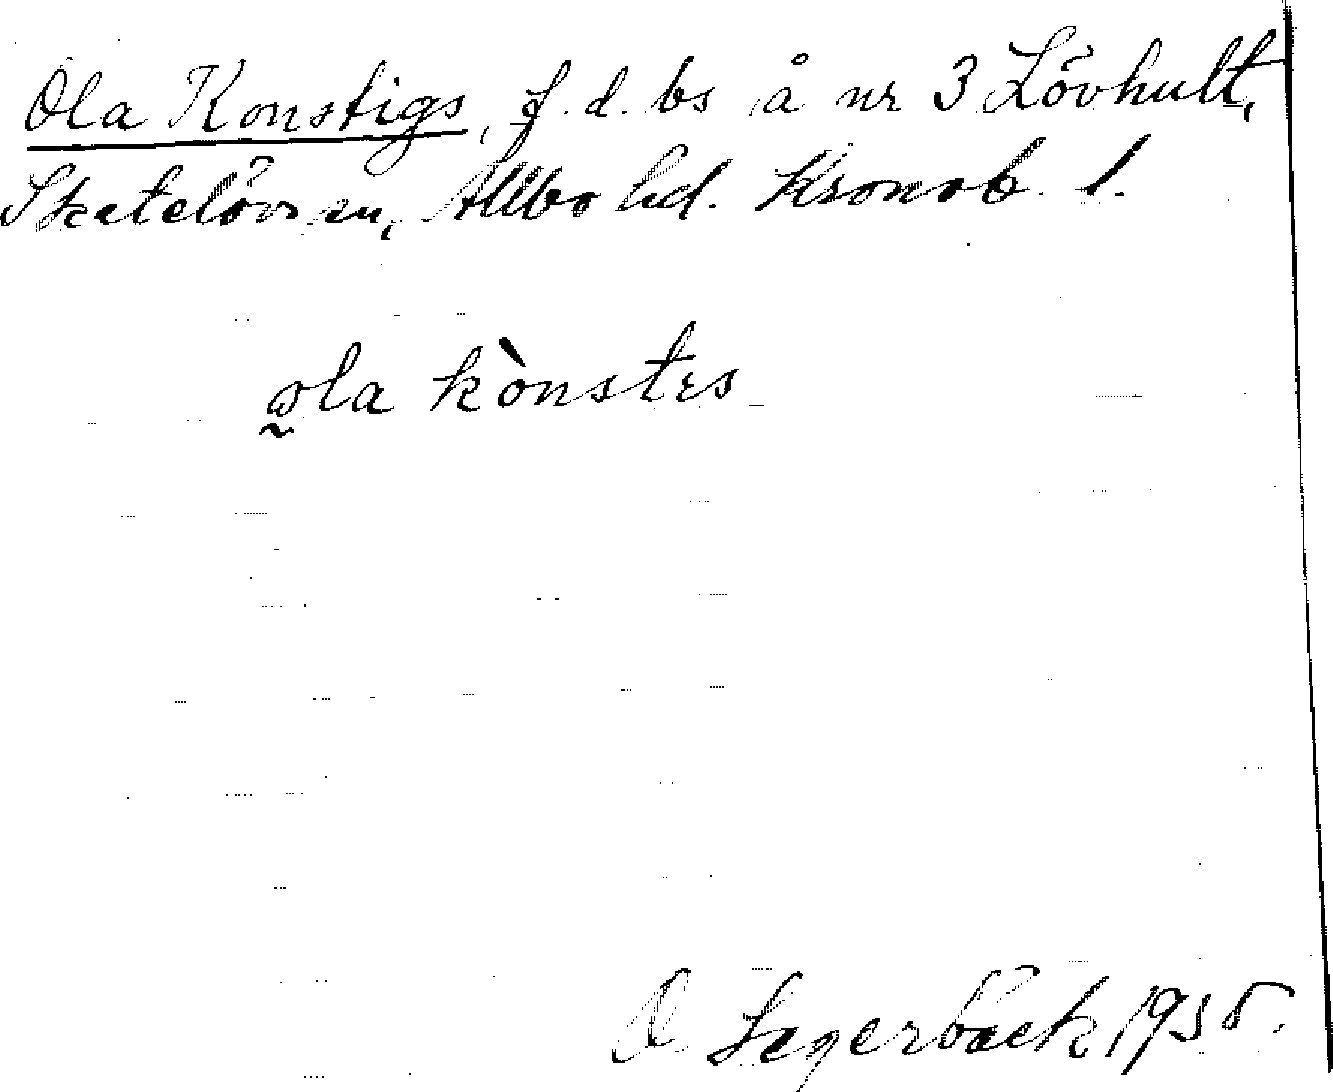 Ola Konstigs, f. d. bs å nr 3 Lövhult,
Skatelövs sn, Allbo hd. Kronob. l.
ola kònstɩs
O Segerbäck 1935.